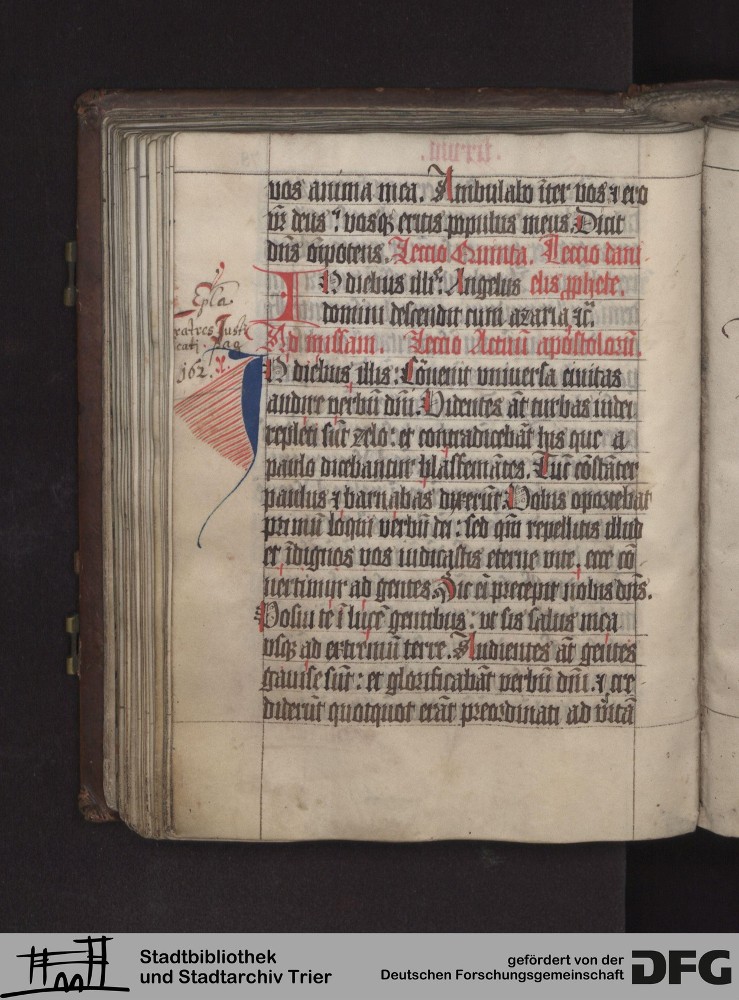 vos anima mea. Ambulabo īter vos ⁊ ero
vr̄ deus ? vosqꝫ eritis populus meus. Dicit
dn̄s om̄ipotens. Lectio Quinta. Lectio dani
IN diebus ill'. Angelus elis ꝓphete.
domini descendit cum azaria ⁊c̄.
Ad missam. Lectio Actuū apostolorū.
IN diebus illis : Cōuenit vniuersa ciuitas
audire verbū dn̄i. Videntes āt turbas iudei
repleti sūt zelo : et contradicebāt his que a
paulo dicebantur blasfemātes. Tūc cōstāter
paulus ⁊ barnabas dixerūt. Vobis oportebat
primū loqui verbū dei : sed qm̄ repellitis illud
et īdignos vos iudicastis eterne vite, ecce cō
uertimur ad gentes. Sic ei precepit nobis dn̄s.
Posui te ī lucē gentibus : ut sis salus mea
vsqꝫ ad extremū terre. Audientes āt gentes
gauise sūt : et glorificabāt verbū dn̄i. ⁊ cre
diderūt quotquot erāt preordinati ad vitā
Epla
ratres Justi
cati . pag
162.
Stadtbibliothek
und Stadtarchiv Trier
gefördert von der
Deutschen Forschungsgemeinschaft
DFG